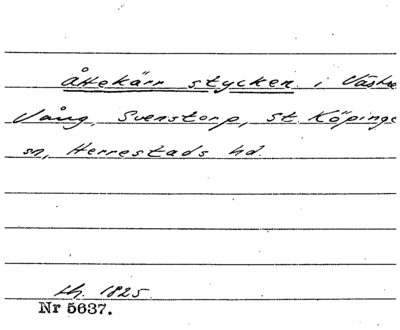 Åttekärr stycken i Västra
Vång, Svenstorp, St. Köpinge
sn, Herrestads hd.
th. 1825.
Nr 5637.